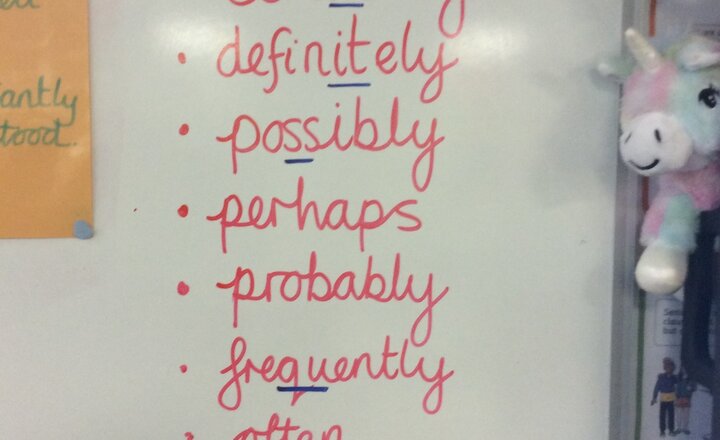 antly
tood.
• definitely
• possibly
• perhaps
• probably
• frequently
• often